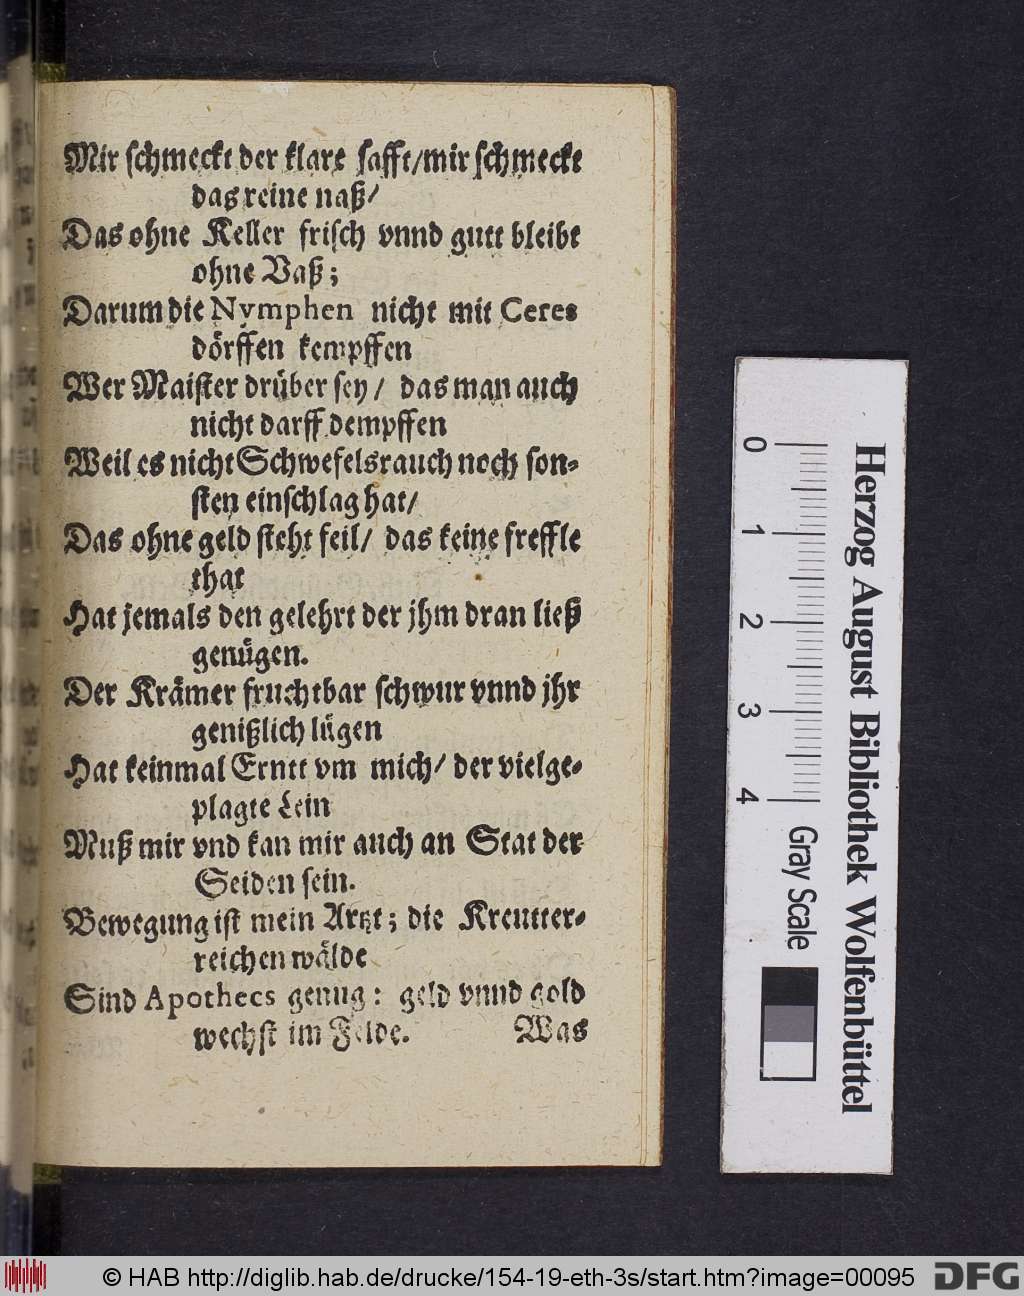 Mir schmeckt der klare safft/mir schmeckt
das reine naß/
Das ohne Keller frisch vnnd gutt bleibt
ohne Vaß;
Darum die Nymphen nicht mit Ceres
dörffen kempffen
Wer Maister drüber sey/ das man auch
nicht darff dempffen
Weil es nicht Schwefelsrauch noch son-
sten einschlag hat/
Das ohne geld steht feil/ das keine freffle
that
Hat jemals den gelehrt der jhm dran ließ
genügen.
Der Krämer fruchtbar schwur vnnd jhr
genißlich lügen
Hat keinmal Erntt vm mich/ der vielge-
plagte Lein
Muß mir vnd kan mir auch an Stat der
Seiden sein.
Bewegung ist mein Artzt; die Kreutter-
reichen wälde
Sind Apothecs genug: geld vnnd gold
wechst im Felde.
Was
0
1
2
3
4
Gray Scale
Herzog August Bibliothek Wolfenbüttel
© HAB http://diglib.hab.de/drucke/154-19-eth-3s/start.htm?image=00095
DFG